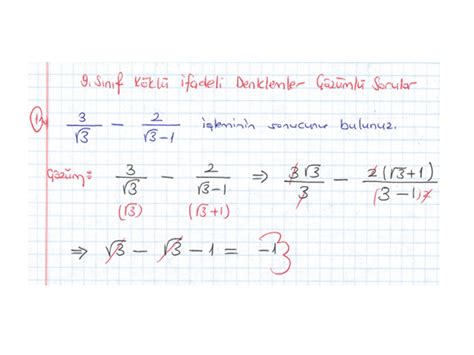 9. Sınıf Köklü İfadeli Denklemler Çözümlü Sorular
1) 3/√3 - 2/(√3-1) işleminin sonucunu bulunuz.
Çözüm: 3/√3 - 2/(√3-1) ⇒ 3√3/3 - 2(√3+1)/(3-1)2
(√3) (√3+1)
⇒ √3 - √3 - 1 = -1